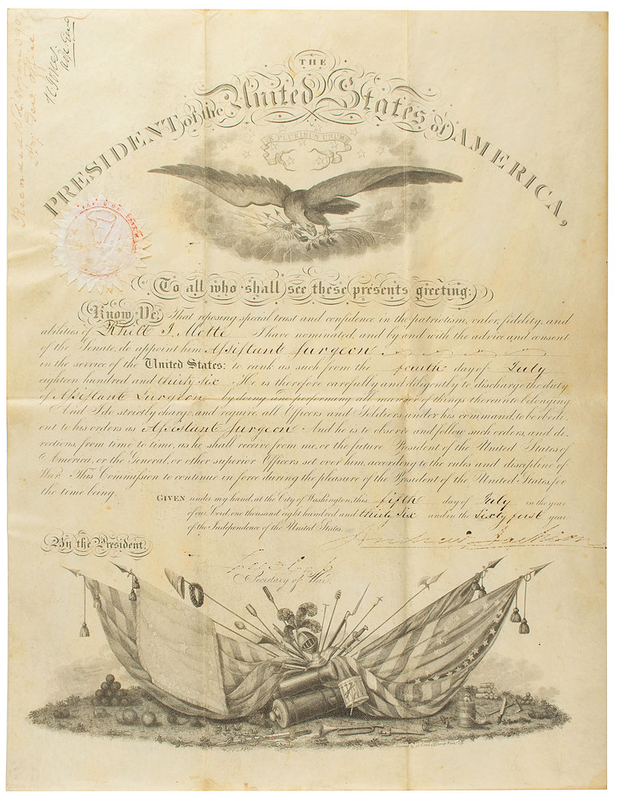 THE
PRESIDENT of the United States of AMERICA,
E PLURIBUS UNUM
To all who shall see these presents greeting:
Know Ye, That reposing special trust and confidence in the patriotism, valor, fidelity, and
abilities of J. Motte I have nominated, and by and with the advice and consent
of the Senate, do appoint him Assistant Surgeon
in the service of the United States: to rank as such from the fourth day of July
eighteen hundred and thirty six He is therefore carefully and diligently to discharge the duty
of Assistant Surgeon by doing and performing all manner of things thereunto belonging
And I do strictly charge, and require all Officers and Soldiers under his command, to be obedi-
ent to his orders as Assistant Surgeon And he is to observe and follow such orders, and di-
rections, from time to time, as he shall receive from me, or the future President of the United States of
America, or the General, or other superior Officers set over him, according to the rules and discipline of
War. This Commission to continue in force during the pleasure of the President of the United States, for
the time being.
GIVEN under my hand, at the City of Washington, this fifth day of July in the year
of our Lord, one thousand eight hundred and thirty six and in the Sixty first year
of the Independence of the United States.
By the President,
Andrew Jackson
Secretary of War.